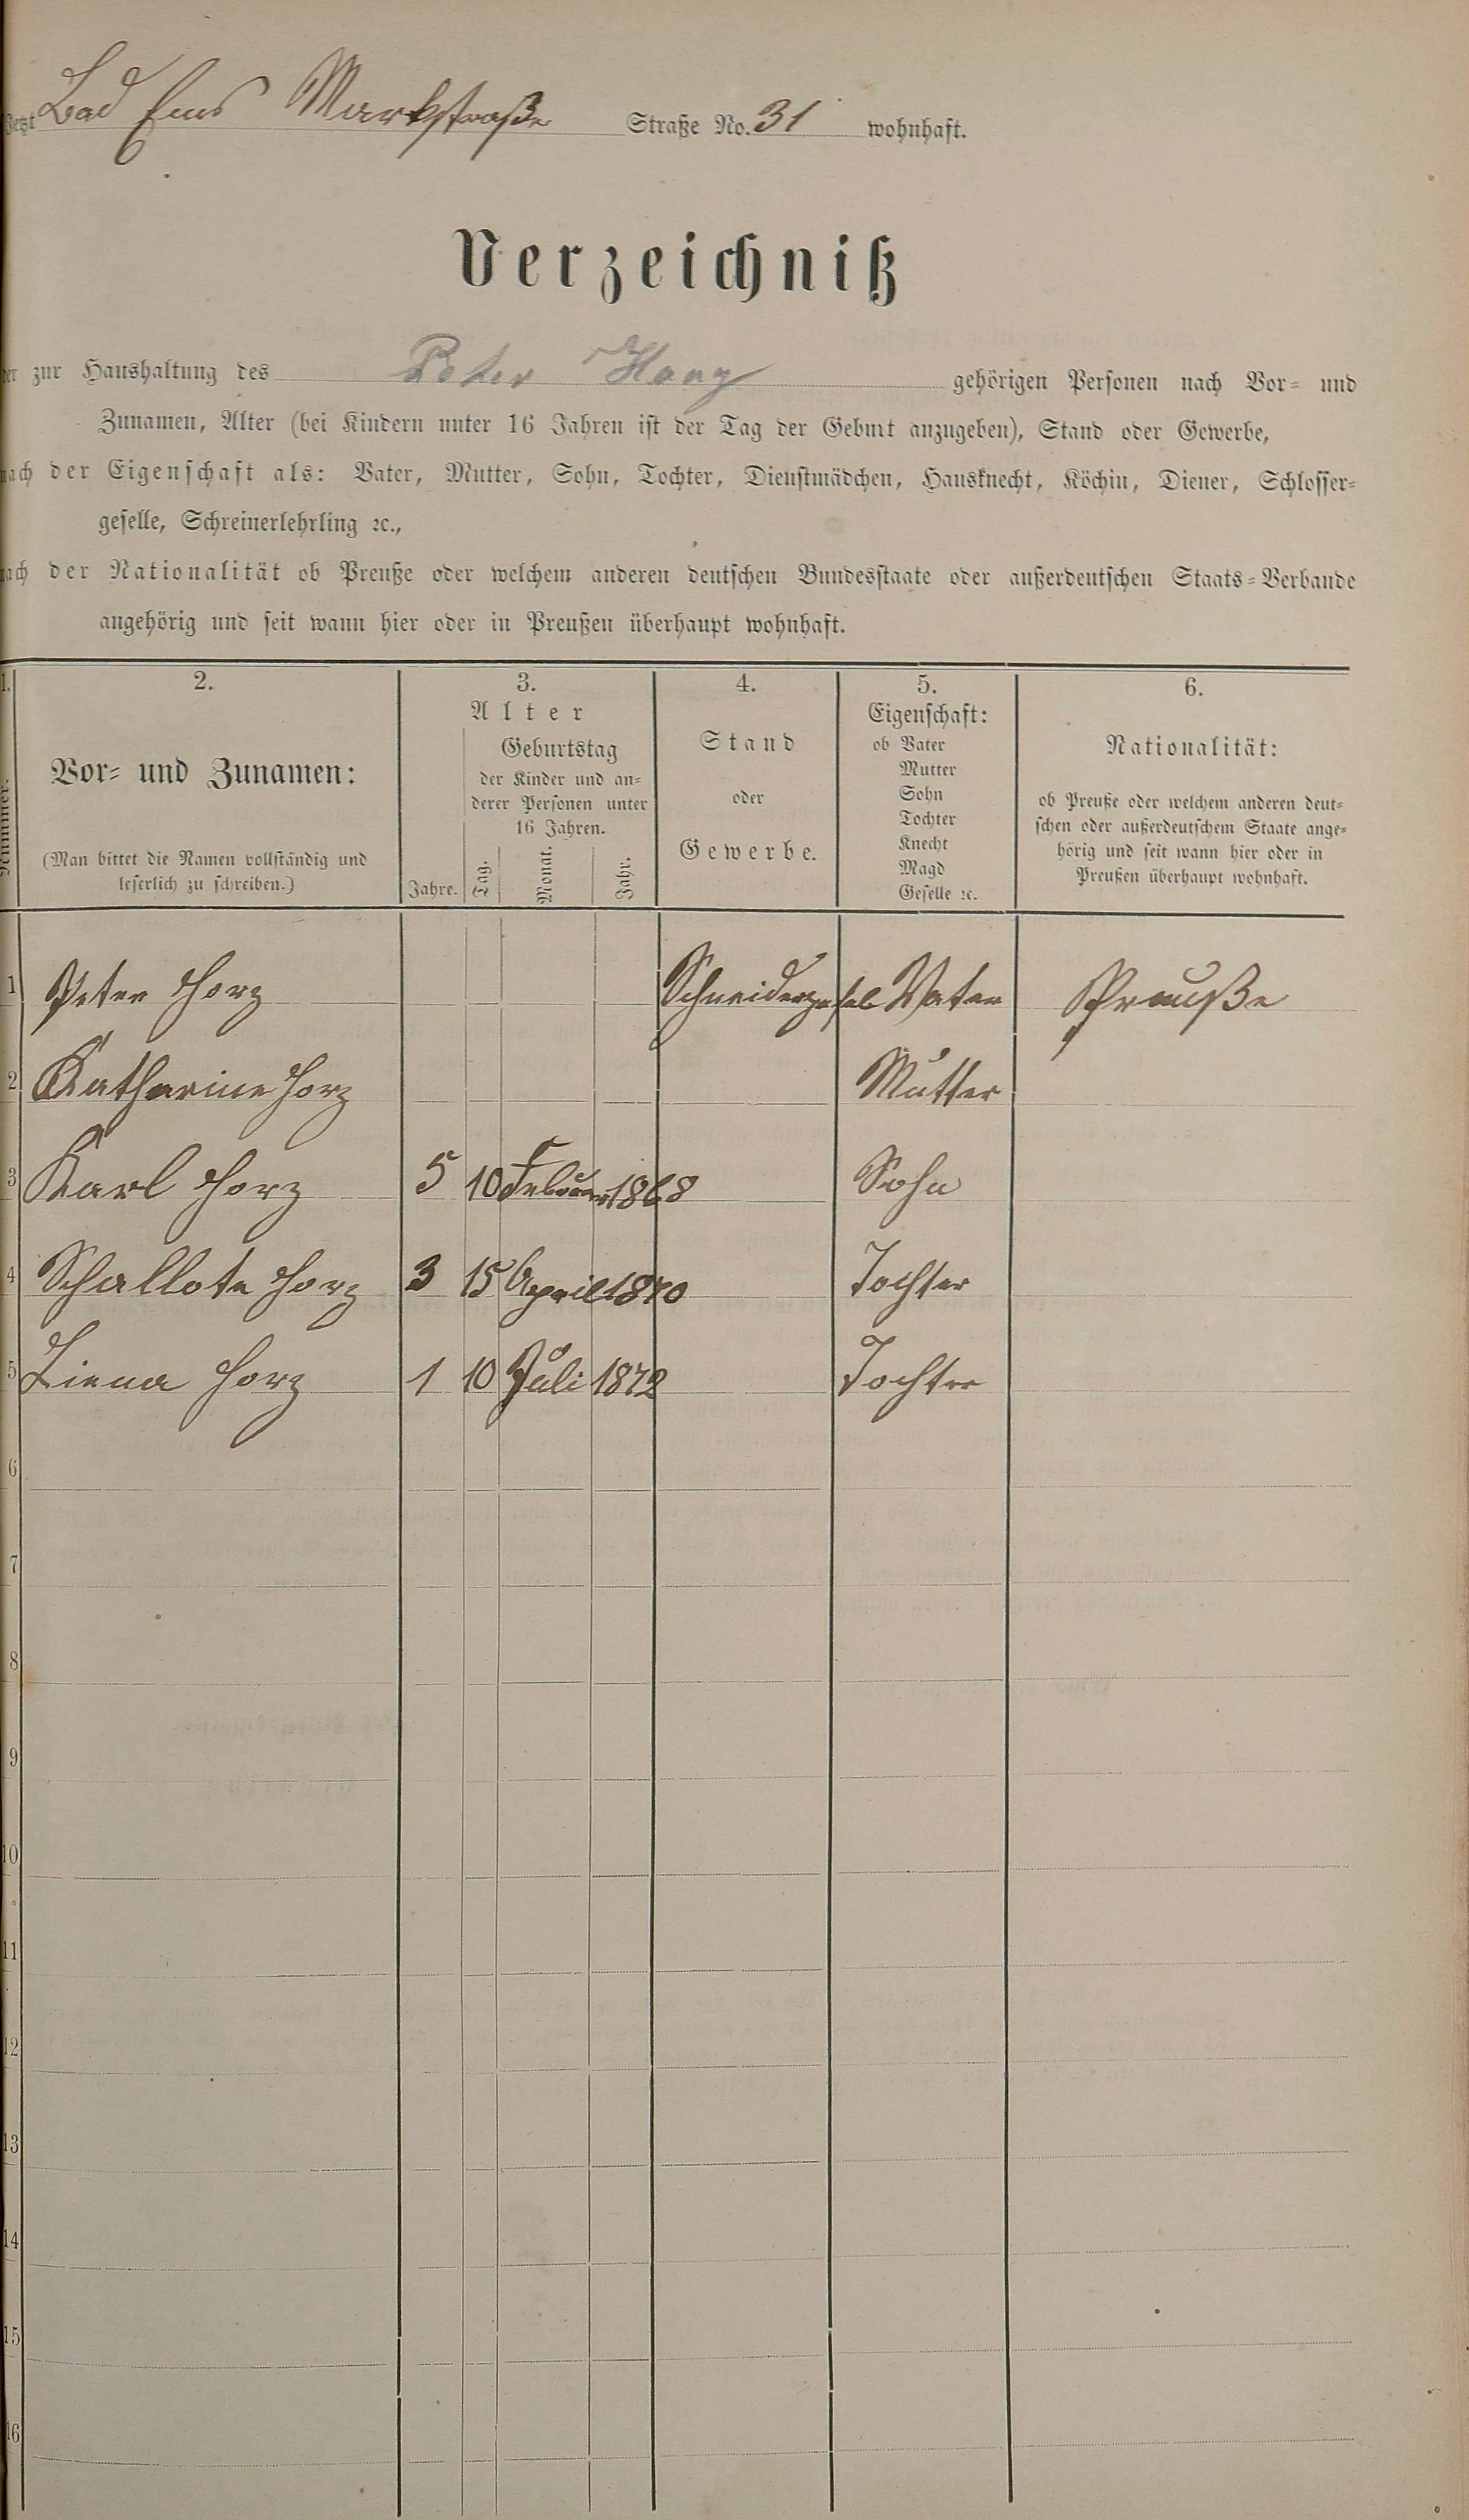 Jetzt Bad Ems Markstraße Straße No. 31 wohnhaft.
Verzeichniß
der zur Haushaltung des Peter gehörigen Personen nach Vor- und
Zunamen, Alter (bei Kindern unter 16 Jahren ist der Tag der Geburt anzugeben), Stand oder Gewerbe,
nach der Eigenschaft als: Vater, Mutter, Sohn, Tochter, Dienstmädchen, Hausknecht, Köchin, Diener, Schlosser-
geselle, Schreinerlehrling ꝛc.,
nach der Nationalität ob Preuße oder welchem anderen deutschen Bundesstaate oder außerdeutschen Staats-Verbande
angehörig und seit wann hier oder in Preußen überhaupt wohnhaft.
1. 2. 3. 4. 5. 6.
Nummer.
Vor- und Zunamen:
(Man bittet die Namen vollständig und
leserlich zu schreiben.)
Alter
Jahre.
Geburtstag
der Kinder und an-
derer Personen unter
16 Jahren.
Tag. Monat. Jahr.
Stand
oder
Gewerbe.
Eigenschaft:
ob Vater
Mutter
Sohn
Tochter
Knecht
Magd
Geselle ꝛc.
Nationalität:
ob Preuße oder welchem anderen deut-
schen oder außerdeutschem Staate ange-
hörig und seit wann hier oder in
Preußen überhaupt wohnhaft.
1 Peter Horz Vater Preuße
2 Katharine Horz Mutter
3 Karl Horz 5 10 Februar 1868 Sohn
4 Schallote Horz 3 15 April 1870 Tochter
5 Liena Horz 1 10 Juli 1872 Tochter
6
7
8
9
10
11
12
13
14
15
16